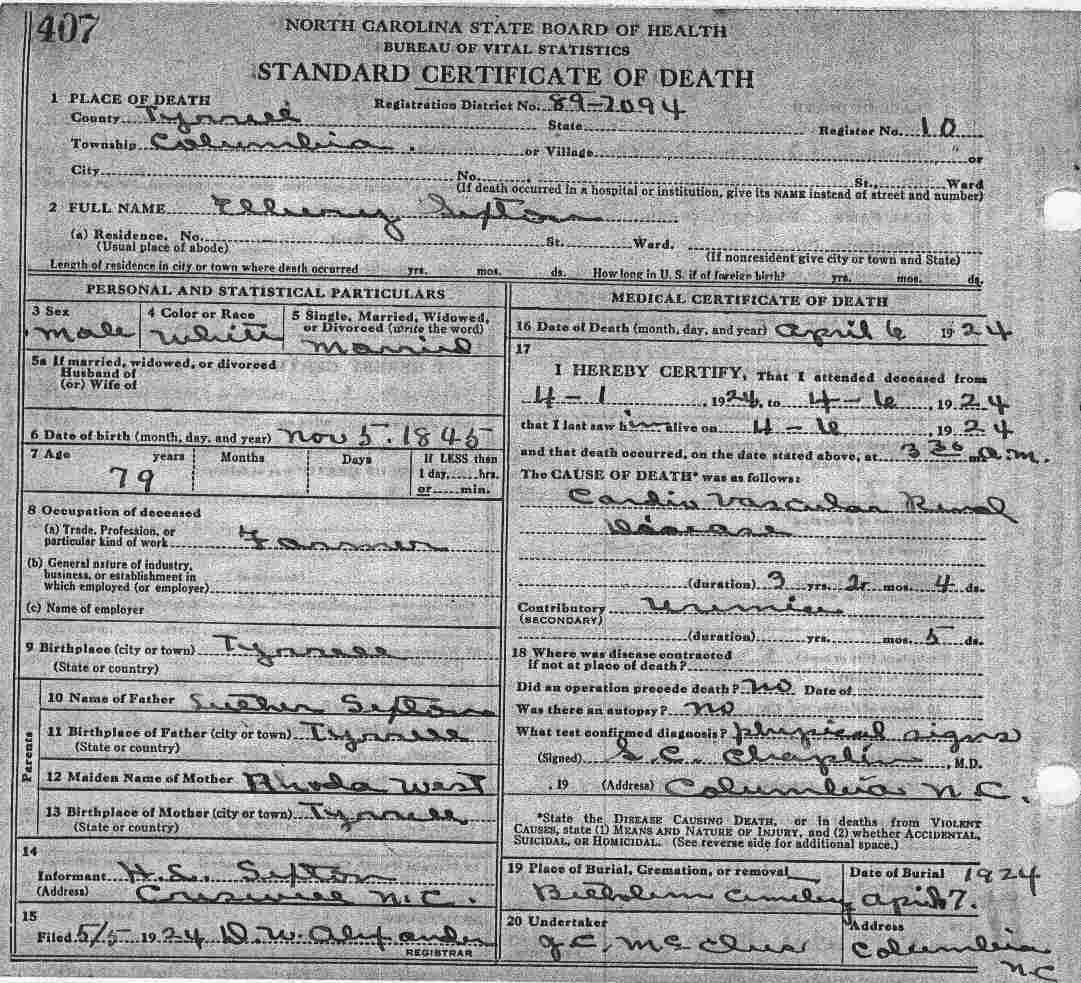 407
NORTH CAROLINA STATE BOARD OF HEALTH
BUREAU OF VITAL STATISTICS
STANDARD CERTIFICATE OF DEATH
1 PLACE OF DEATH Registration District No. 89-2094
County Tyrrell State Register No. 10
Township Columbia. or Village or
City No. St., Ward
(If death occurred in a hospital or institution, give its NAME instead of street and number)
2 FULL NAME Ellury Sexton
(a) Residence. No. St. Ward.
(Usual place of abode) (If nonresident give city or town and State)
Length of residence in city or town where death occurred yrs. mos. ds. How long in U. S. if of foreign birth? yrs. mos. ds.
PERSONAL AND STATISTICAL PARTICULARS
3 Sex 4 Color or Race 5 Single, Married, Widowed,
or Divorced (write the word)
male White Married
5a If married, widowed, or divorced
Husband of
(or) Wife of
6 Date of birth (month, day, and year) Nov 5. 1845
7 Age years Months Days If LESS than
1 day, hrs.
79 or min.
8 Occupation of deceased
(a) Trade, Profession, or
particular kind of work Farmer
(b) General nature of industry,
business, or establishment in
which employed (or employer)
(c) Name of employer
9 Birthplace (city or town) Tyrrell
(State or country)
Parents
10 Name of Father Luther Sexton
11 Birthplace of Father (city or town) Tyrrell
(State or country)
12 Maiden Name of Mother Rhoda West
13 Birthplace of Mother (city or town) Tyrrell
(State or country)
14
Informant H. S. Sexton
(Address) Creswell N.C.
15
Filed 5/5 1924 D. W. Alexander
REGISTRAR
MEDICAL CERTIFICATE OF DEATH
16 Date of Death (month, day, and year) April 6 1924
17
I HEREBY CERTIFY, That I attended deceased from
4-1, 1924, to 4-6, 1924
that I last saw him alive on 4-6, 1924
and that death occurred, on the date stated above, at 3 30 a.m.
The CAUSE OF DEATH* was as follows:
Cardio Vascular Renal
Disease
(duration) 3 yrs. 2 mos. 4 ds.
Contributory Uremia
(SECONDARY)
(duration) yrs. mos. 5 ds.
18 Where was disease contracted
if not at place of death?
Did an operation precede death? no Date of
Was there an autopsy? no
What test confirmed diagnosis? physical signs
(Signed) S.C. Chaplin, M.D.
, 19 (Address) Columbia N.C.
*State the DISEASE CAUSING DEATH, or in deaths from VIOLENT
CAUSES, state (1) MEANS AND NATURE OF INJURY, and (2) whether ACCIDENTAL,
SUICIDAL, OR HOMICIDAL. (See reverse side for additional space.)
19 Place of Burial, Cremation, or removal Date of Burial 1924
Cemetery April 7.
20 Undertaker Address
J.C. Columbia
N.C